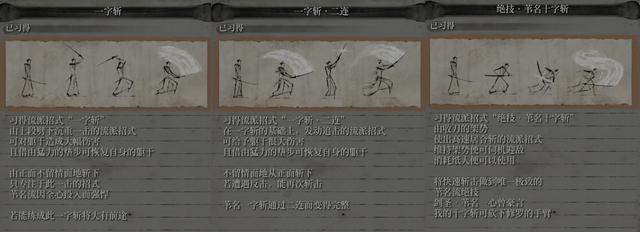 一字斩
已习得
习得流派招式“一字斩”
由上段劈下沉重一击的流派招式
可对躯干造成大幅伤害
且借由猛力的垫步可恢复自身的躯干
由正面不留情面地斩下
只专注于此一击的招式
苇名流因全心投入而强悍
若能练成此一字斩将大有前途
一字斩·二连
已习得
习得流派招式“一字斩·二连”
在一字斩的基础上，发动追击的流派招式
可给予躯干很大伤害
且借由猛力的垫步可恢复自身的躯干
不留情面地从正面斩下
若遭遇反击，能再次斩击
苇名一字斩通过二连而变得完整
绝技·苇名十字斩
已习得
习得流派招式“绝技·苇名十字斩”
由收刀的架势
使出高速居合斩的流派招式
维持架势便可伺机迎敌
消耗纸人便可以使用
将快速斩击做到唯一极致的
苇名流绝技
剑圣·苇名一心曾豪言
我的十字斩可砍下修罗的手臂